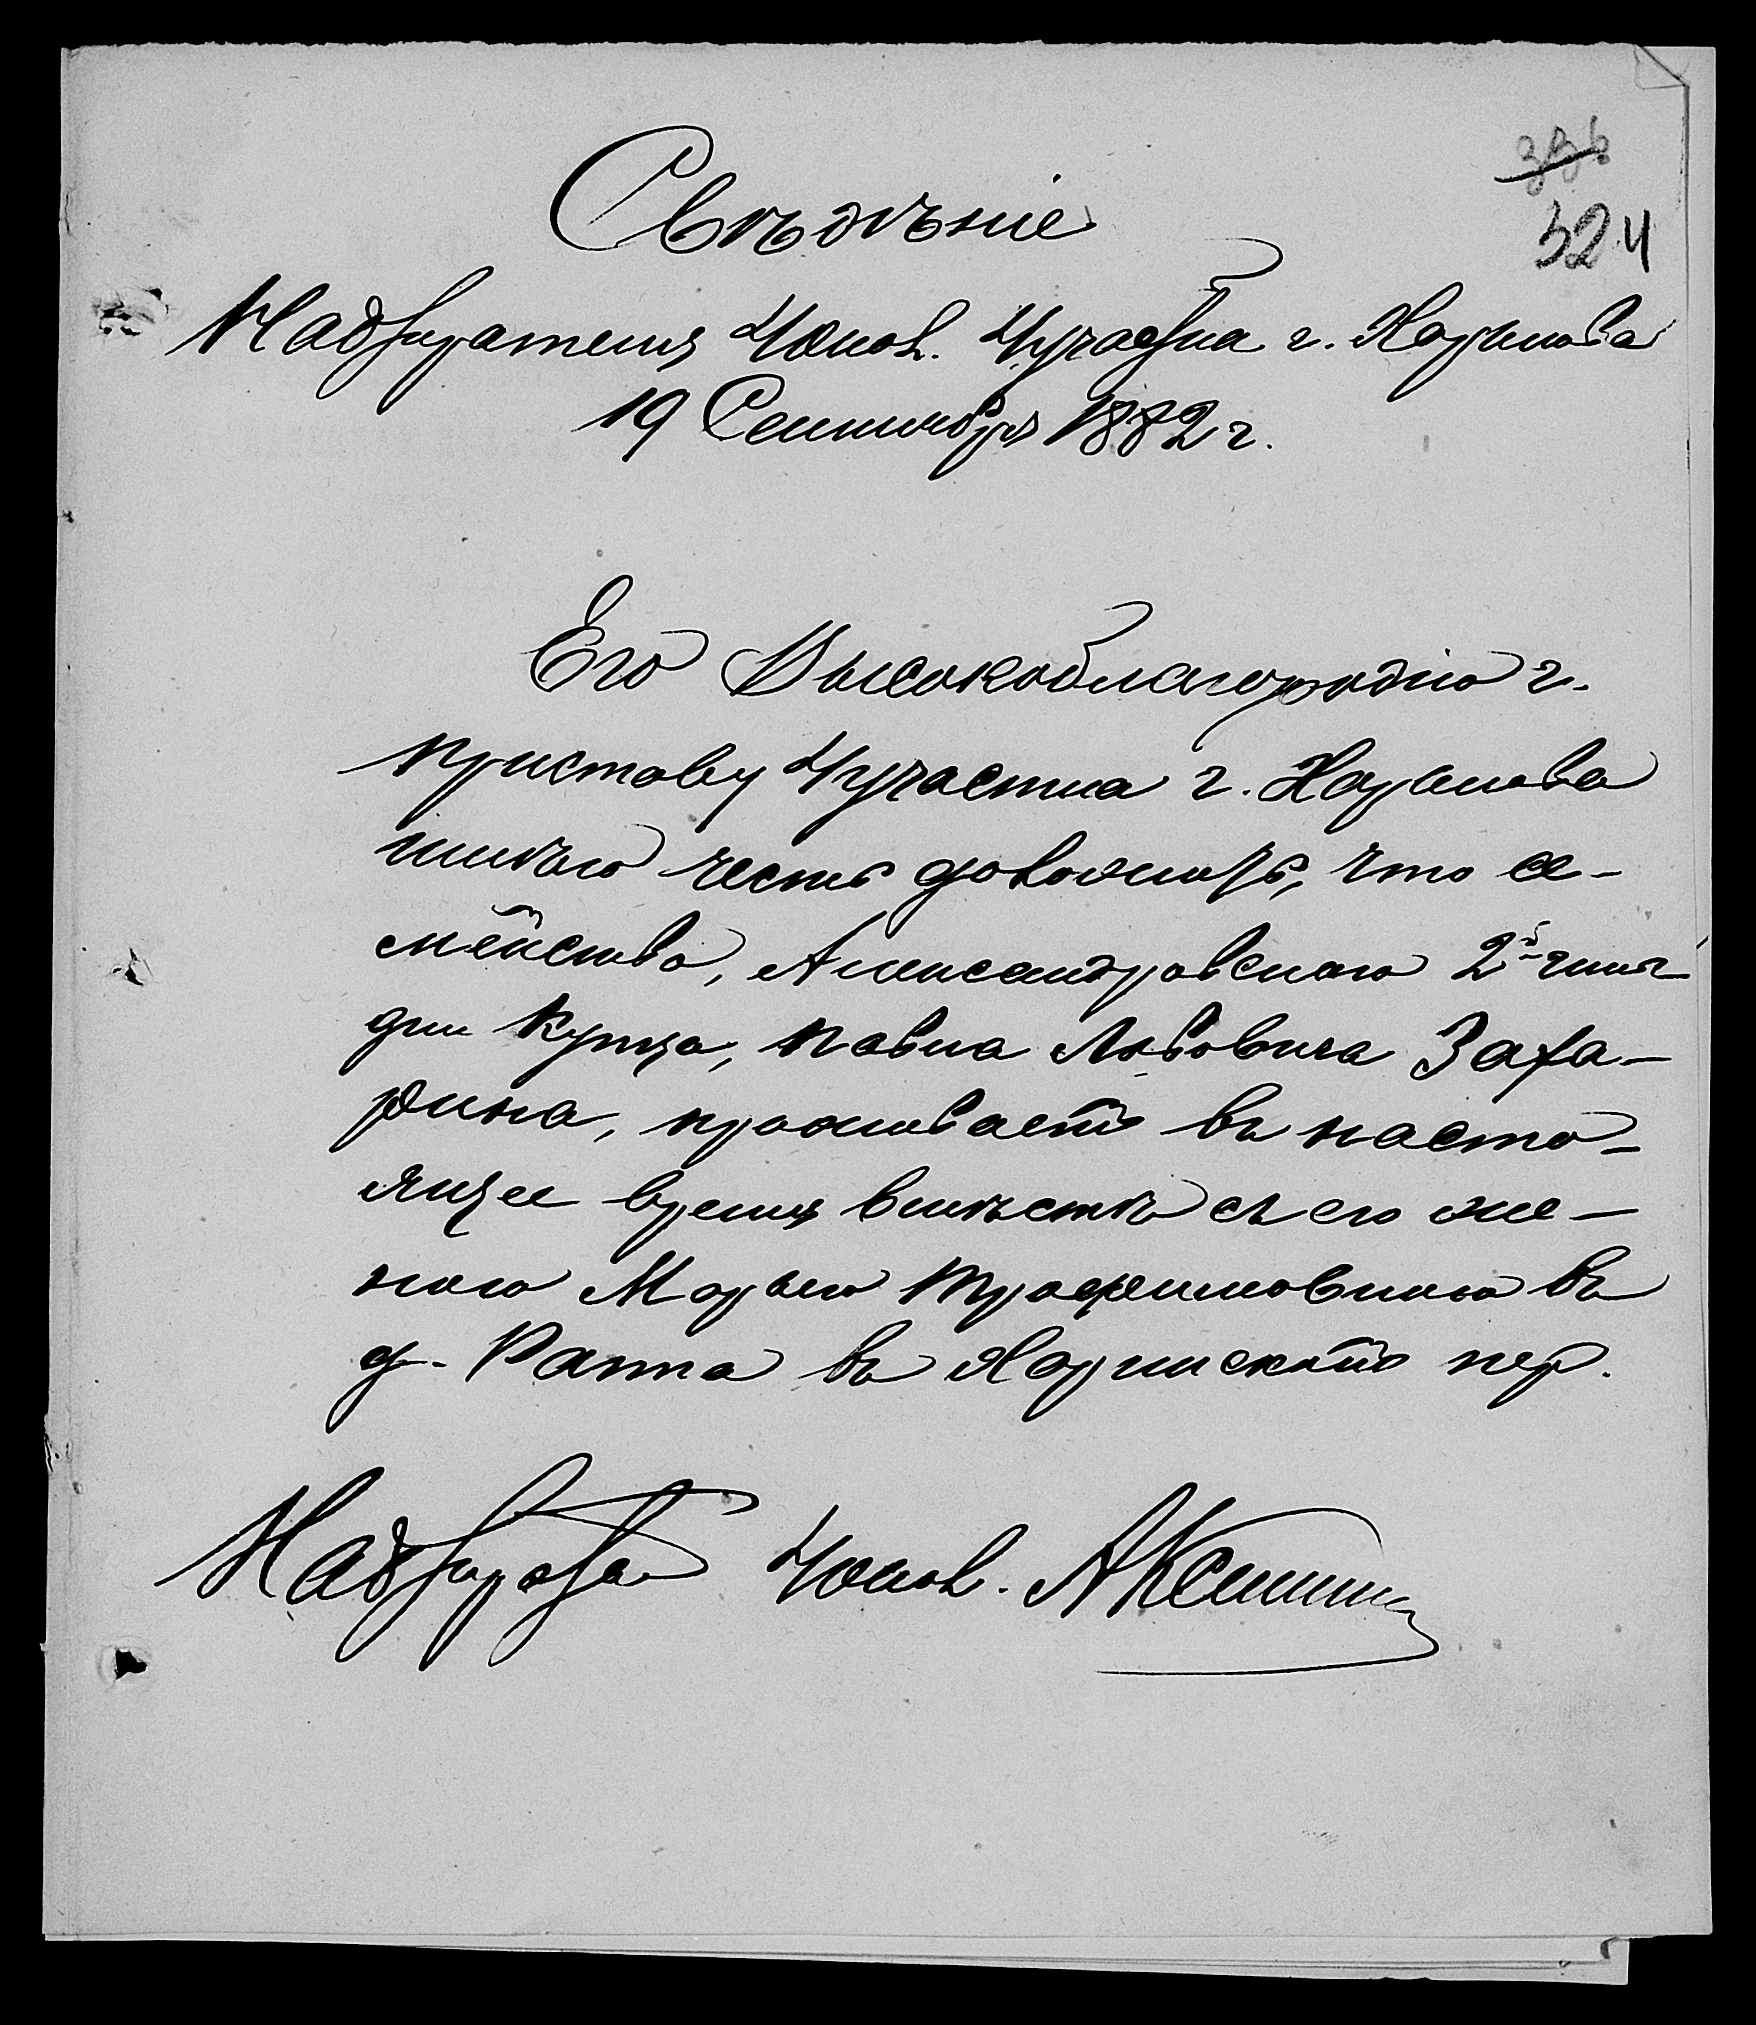 336
324
Свѣдѣніе
Надзирателя 4 окол. 4 участка г. Харькова
19 Сентября 1882 г.
Его Высокоблагородію г.
Приставу 4 участка г. Харькова
имѣю честь доложить, что се-
мейство, Александровскаго 2й гиль
діи купца, Павла Львовича Заха-
рина, проживаетъ въ насто-
ящее время вмѣстѣ съ его же-
ною Марьею Трофимовною въ
д. Рапа въ Харинскомъ пер.
Надзират 4 окол.